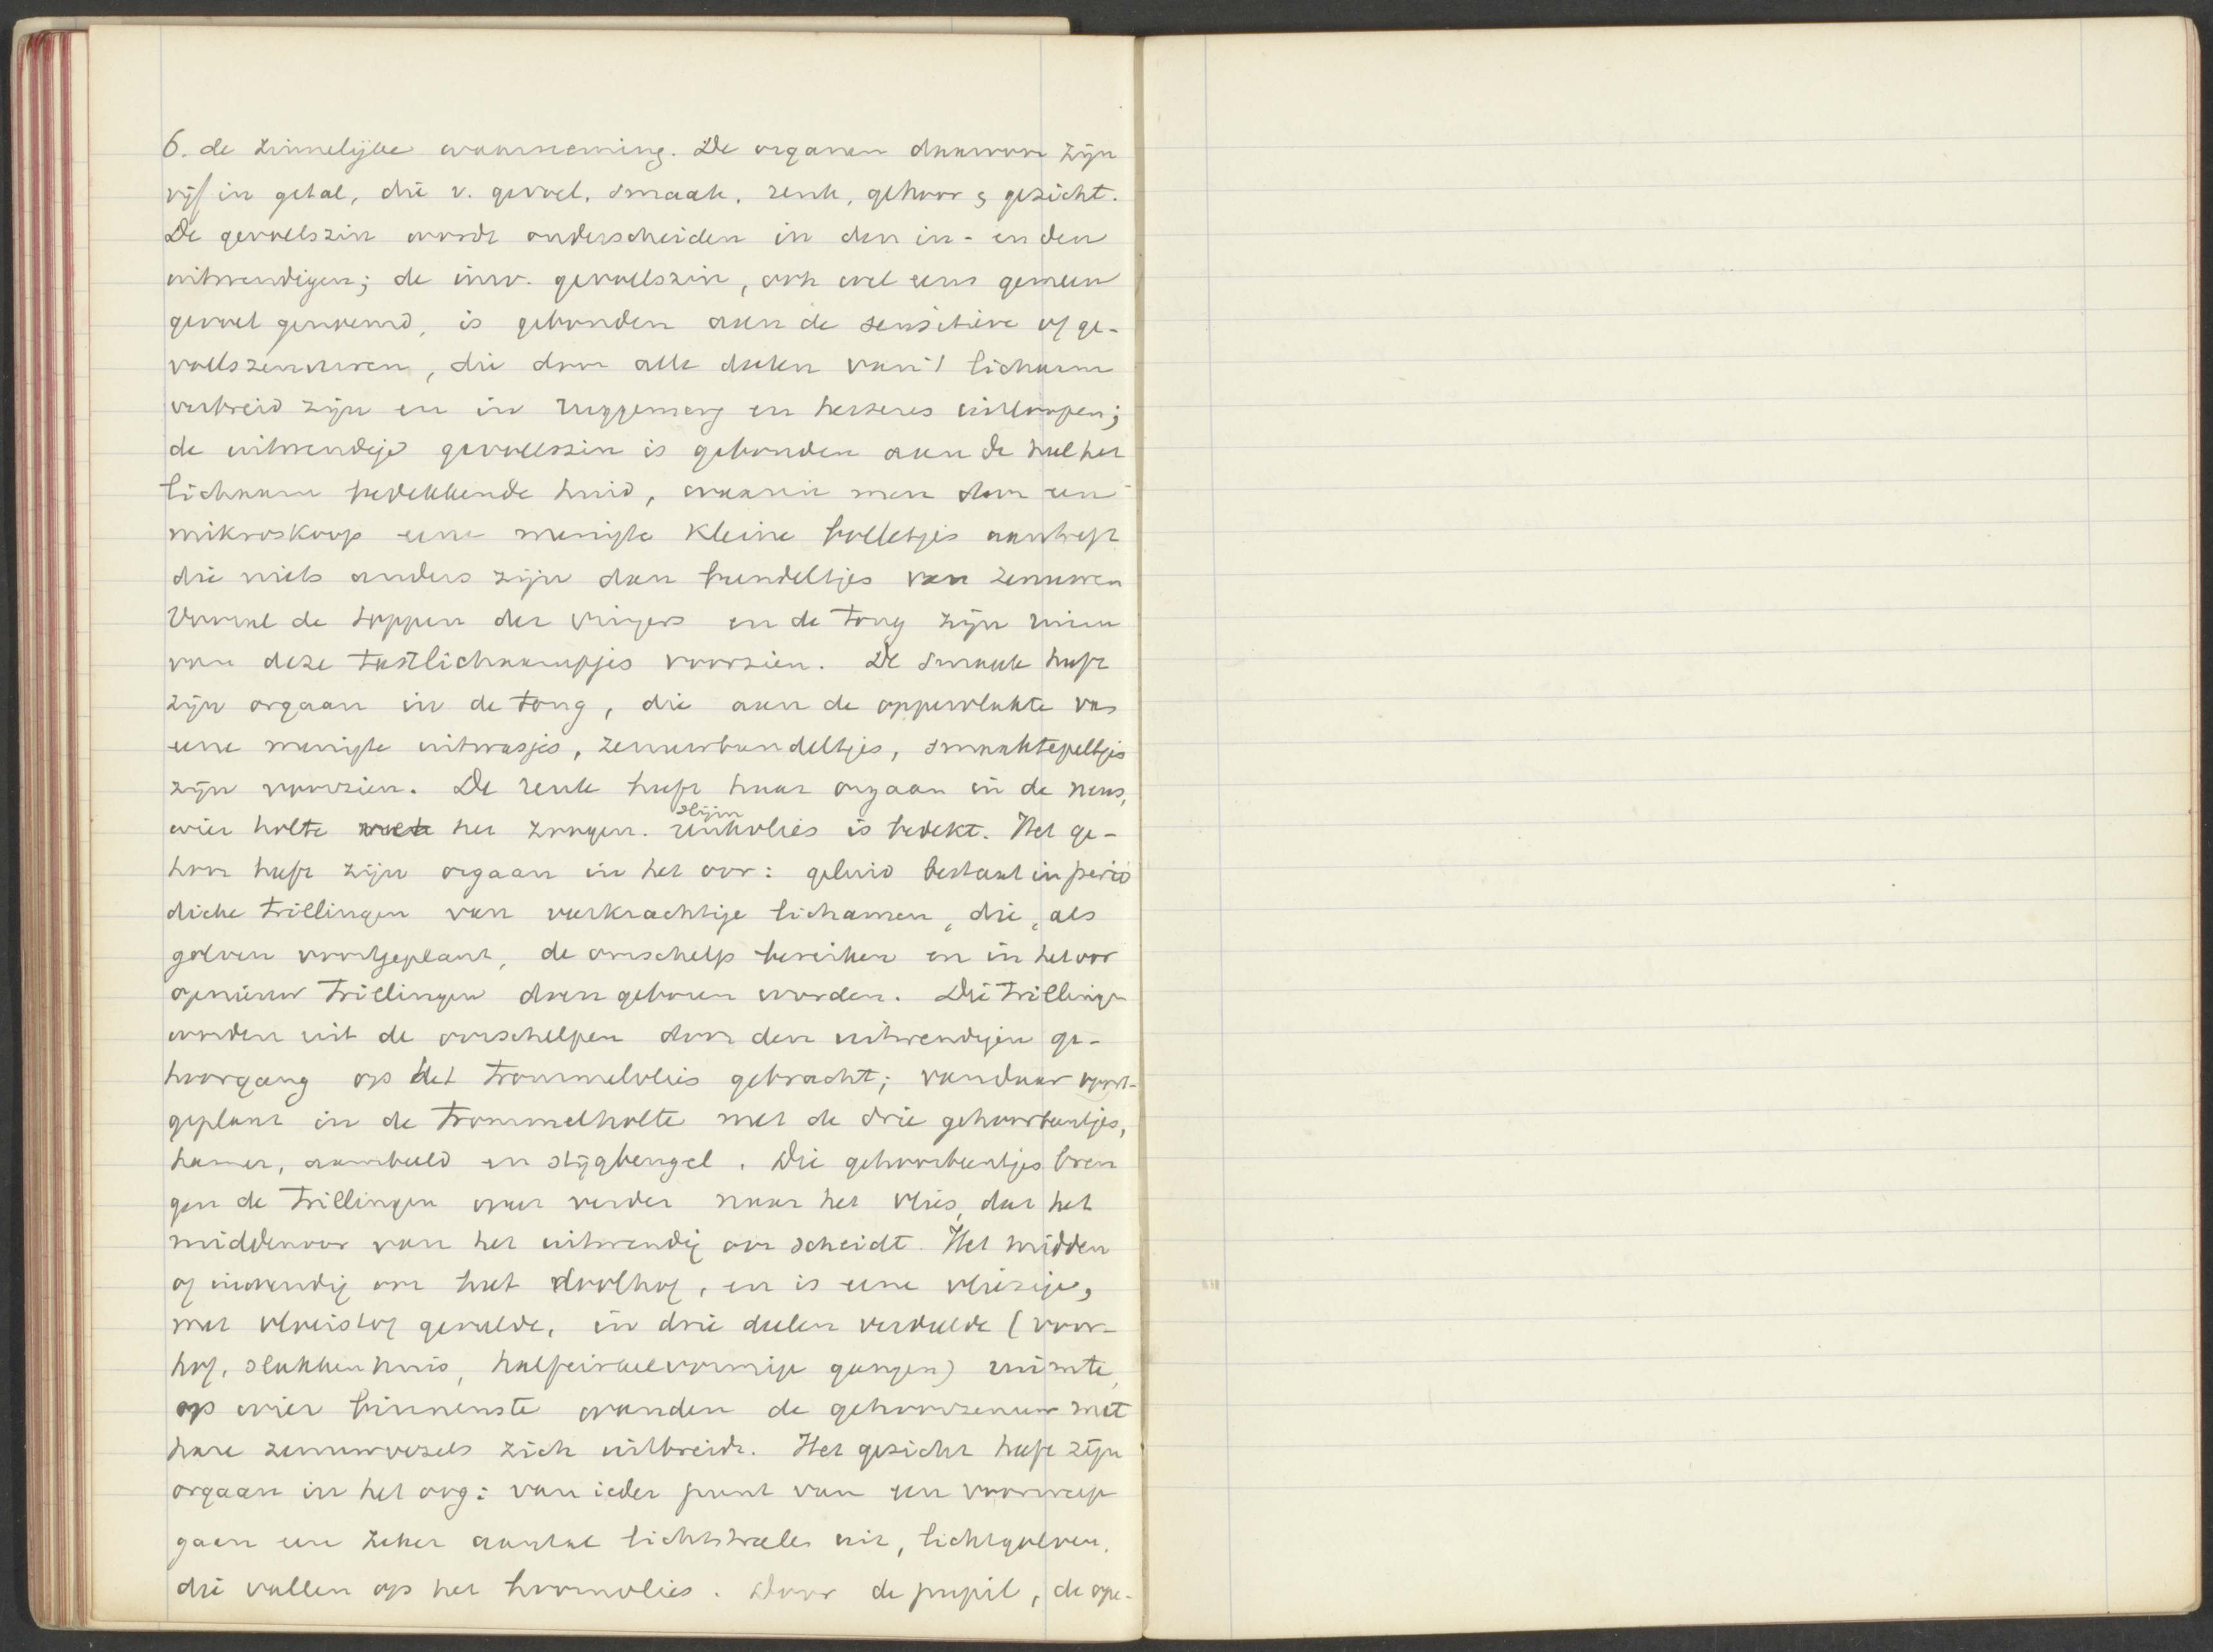 6. de zinnelijke waarneming. De organen daarvan zijn
vijf in getal, die v. gevoel, smaak, reuk, gehoor & gezicht.
De gevoelszin wordt onderscheiden in den in- en den
uitwendigen; de inw. gevoelszin, ook wel eens gemeen
gevoel genoemd, is gebonden aan de sensitieve of ge-
voelszenuwen, die door alle deelen van 't lichaam
verbreid zijn en in ruggemerg en hersenen uitloopen;
de uitwendige gevoelszin is gebonden aan de heel het
lichaam bedekkende huid, waarin men door een
mikroskoop eene menigte kleine bolletjes aantreft
die niets anders zijn dan bundeltjes van zenuwen
Vooral de toppen der vingers en de tong zijn ruim
van deze tastlichaampjes voorzien. De smaak heeft
zijn orgaan in de tong, die aan de oppervlakte van
eene menigte uitwasjes, zenuwbundeltjes, smaaktepeltjes
zijn voorzien. De reuk heeft haar orgaan in de neus,
wier holte met het zoogen. slijm reukvlies is bedekt. Het ge-
hoor heeft zijn orgaan in het oor: geluid bestaat in perio
dieke trillingen van veerkrachtige lichamen, die, als
golven voortgeplant, de oorschelp bereiken en in het oor
opnieuw trillingen doen geboren worden. Die trillingen
worden uit de oorschelpen door den uitwendigen ge-
hoorgang op het trommelvlies gebracht; vandaar voort-
geplant in de trommelholte met de drie gehoorbeentjes,
hamer, aambeeld en stijgbeugel. Die gehoorbeentjes bren
gen de trillingen weer verder naar het vlies, dat het
middenoor van het uitwendig oor scheidt. Het midden
of inwendig oor heet doolhof, en is eene vliezige,
met vloeistof gevulde, in drie deelen verdeelde (voor-
hof, slakkenhuis, halfcirkelvormige gangen) ruimte,
op wier binnenste wanden de gehoorzenuw met
hare zenuwvezels zich uitbreidt. Het gezicht heeft zijn
orgaan in het oog: van ieder punt van een voorwerp
gaan een zeker aantal lichtstralen uit, lichtgolven,
die vallen op het hoornvlies. Door de pupil, de ope-